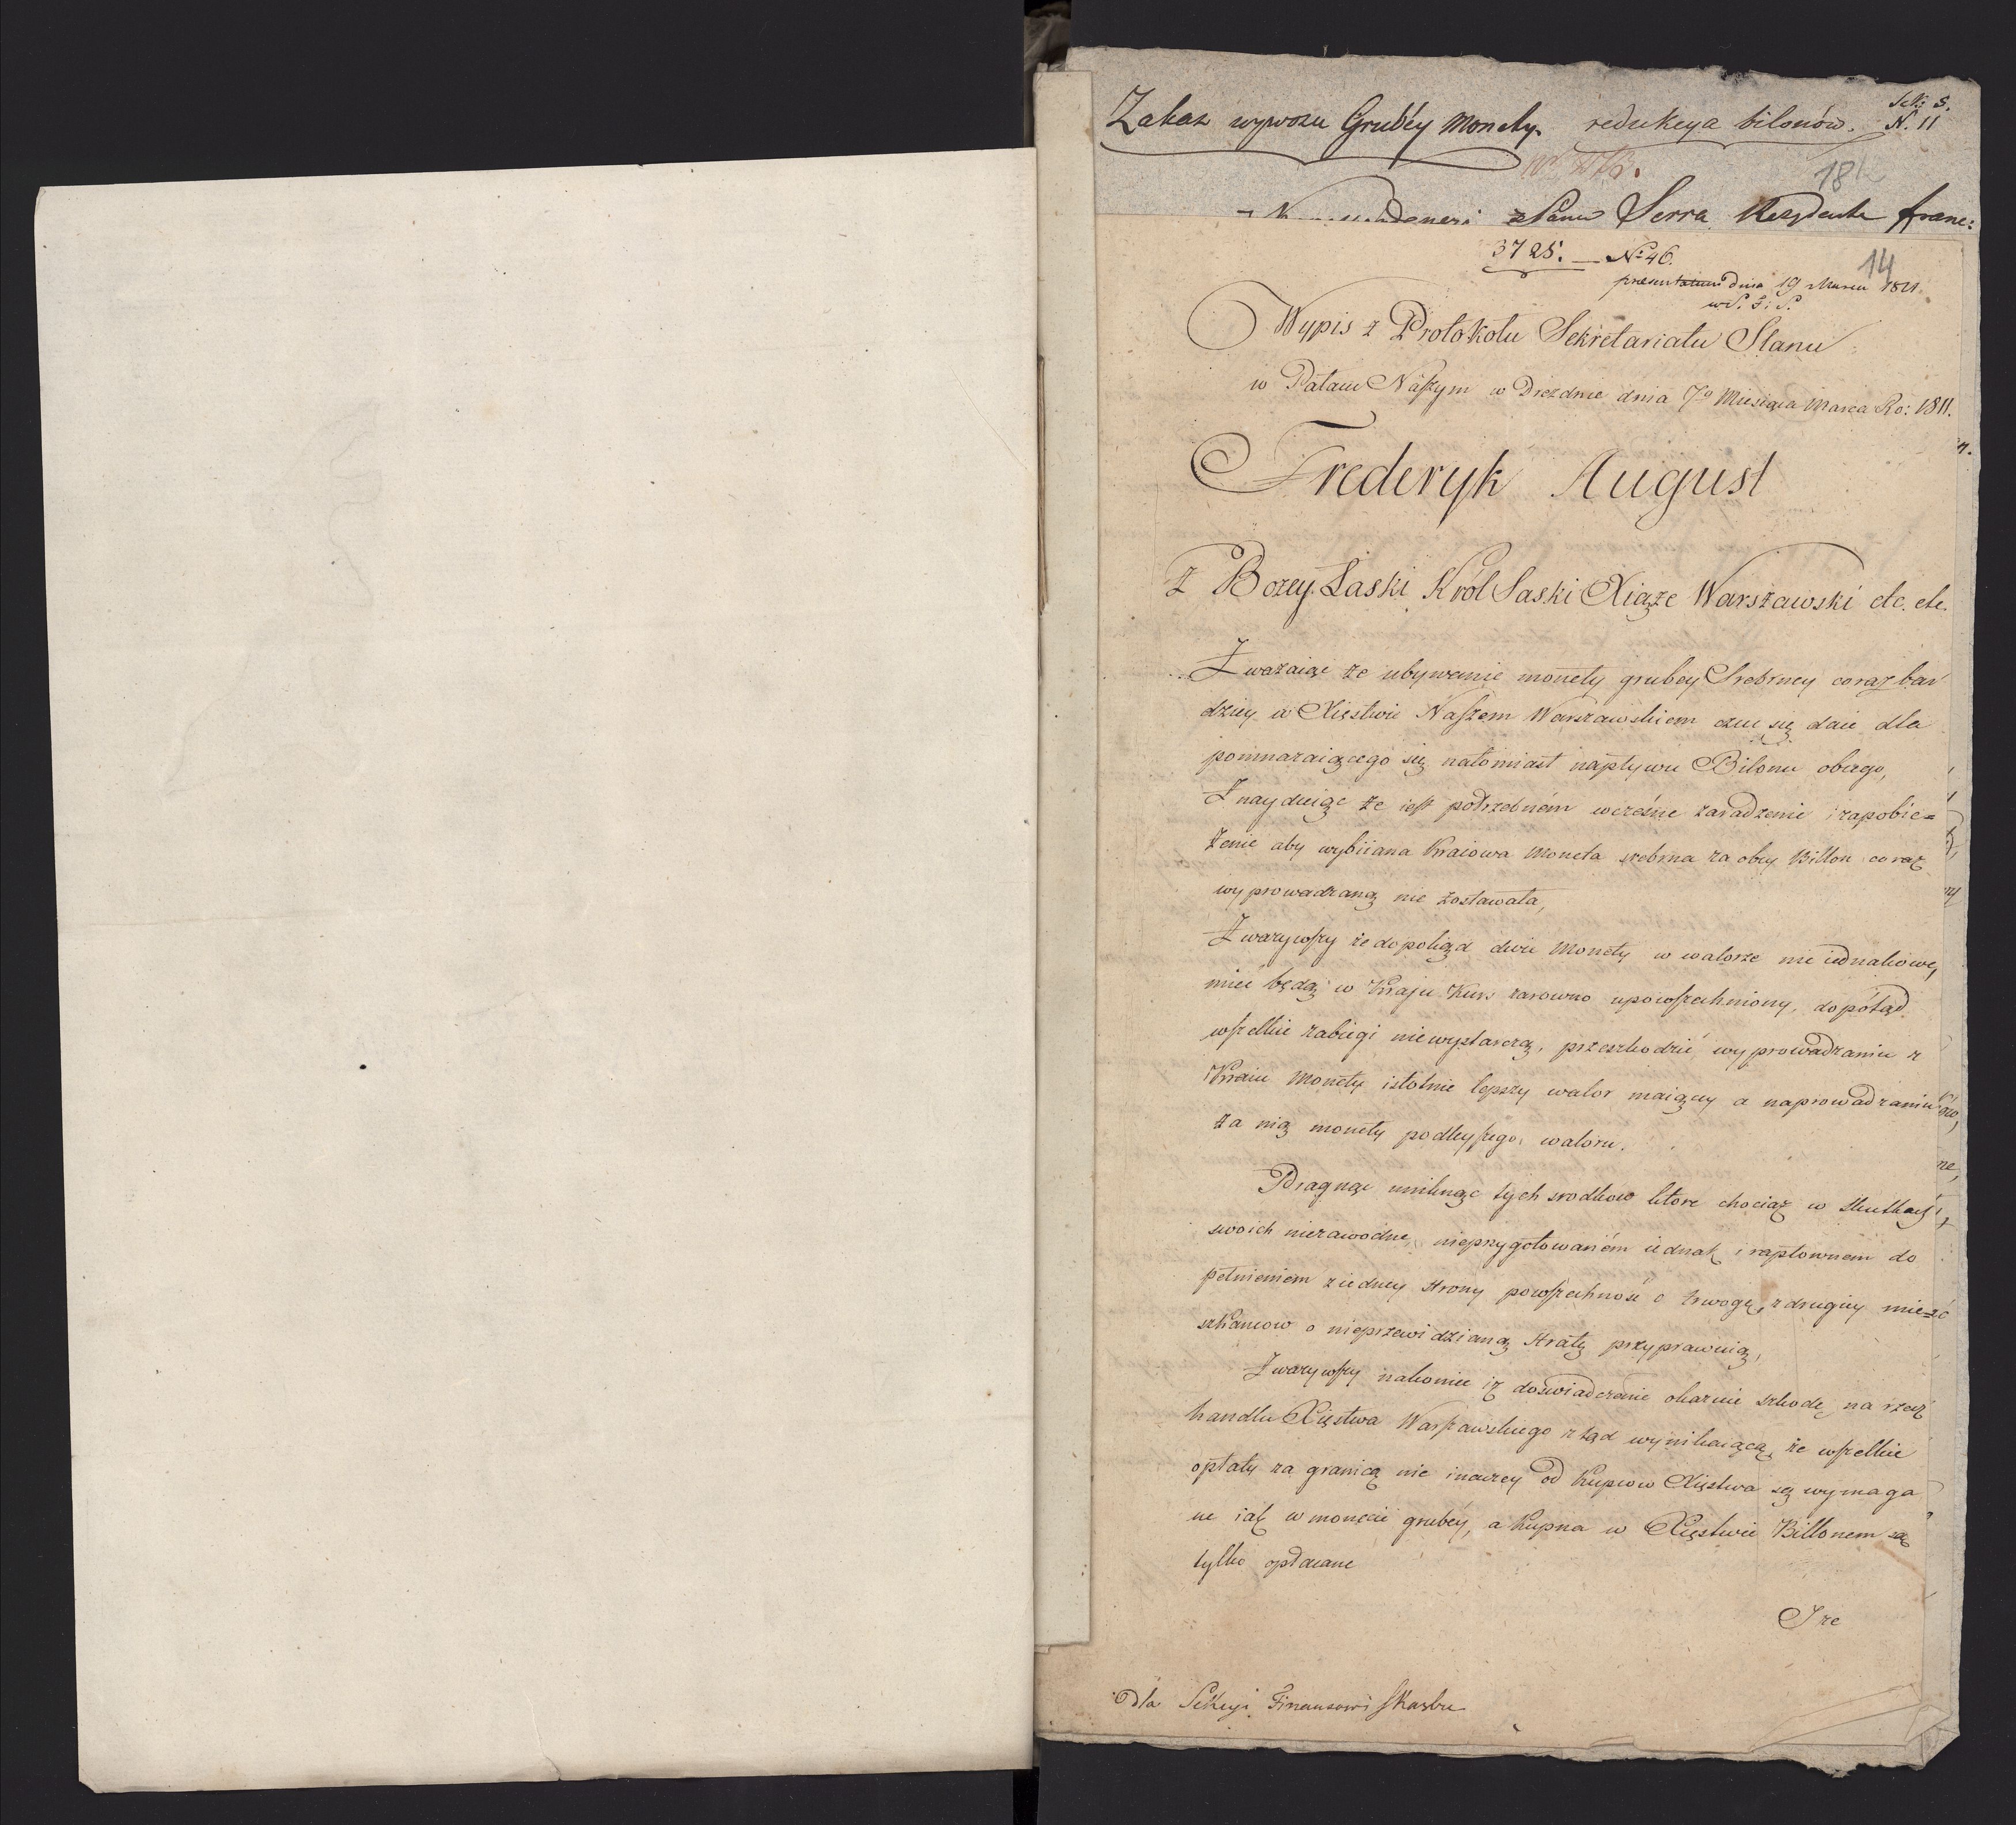 Zakaz wywozu Grubéy Monety. redukcya bilonów. Sek: S.
N. 11
18
z Panem Serra Rezydente franc:
3725. — No 46.
14
presentatum dnia 19 Marca 1811.
w S. F: S.
Wypis z Protokołu Sekretariatu Stanu
w Pałacu Naszym w Dreźdnie dnia 7o Miesiąca Marca Ro: 1811.
Frederyk August
Z Bozey Łaski Król Saski Xiąże Warszawski etc. etc.
Zwazaiąc że ubywanie monety grubey Srebrney coraz bar
dziey w Xięstwie Naszem Warszawskiem czuć się daie dla
pomnazaiącego się natomiast napływu Bilonu obcego,
Znayduiąc że iest potrzebném wcześne zaradzenie i zapobie=
żenie aby wybiiana Kraiowa Moneta srebrna za obcy Billon coraz
wyprowadzaną nie została,
Zwazywszy że dopokąd dwie Monety w walorze nie iednakowe,
mieć będą w Kraju Kurs zarowno upowszechniony, dopótąd
wszelkie zabiegi niewystarczą, przeszkodzić wyprowadzaniu z
Kraiu Monety istotnie lepszy walor maiącey a naprowadzaniu
za nią monety podleyszego waloru.
Pragnąc uniknąc tych srodkow ktore chociaż w skutkach
swoich niezawodne, nieprzygotowaném iednak i raptownem do
pełnieniem z iedney strony powszechność o trwogę, z drugiey mie=
szkancow o nieprzewidzianą stratę przyprawuią,
Zwazywszy nakoniec iż doswiadczenie okazuie szkodę na rzecz
handlu Xięstwa Warszawskiego ztąd wynikaiącą, że wszelkie
opłaty za granicą nie inaczey od Kupcow Xięstwa są wymaga
ne iak w monecie grubéy, a Kupna w Xięstwie Billonem są
tylko opłacane
I że
Dla Sekcyi Finansow i Skarbu